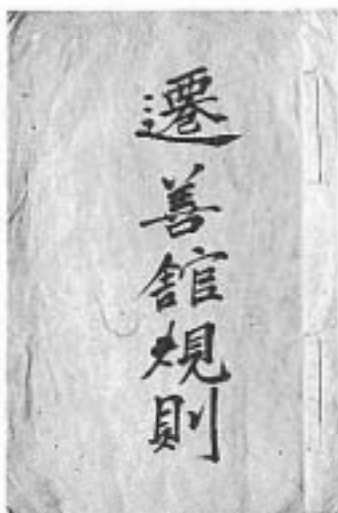 遷善舘規則